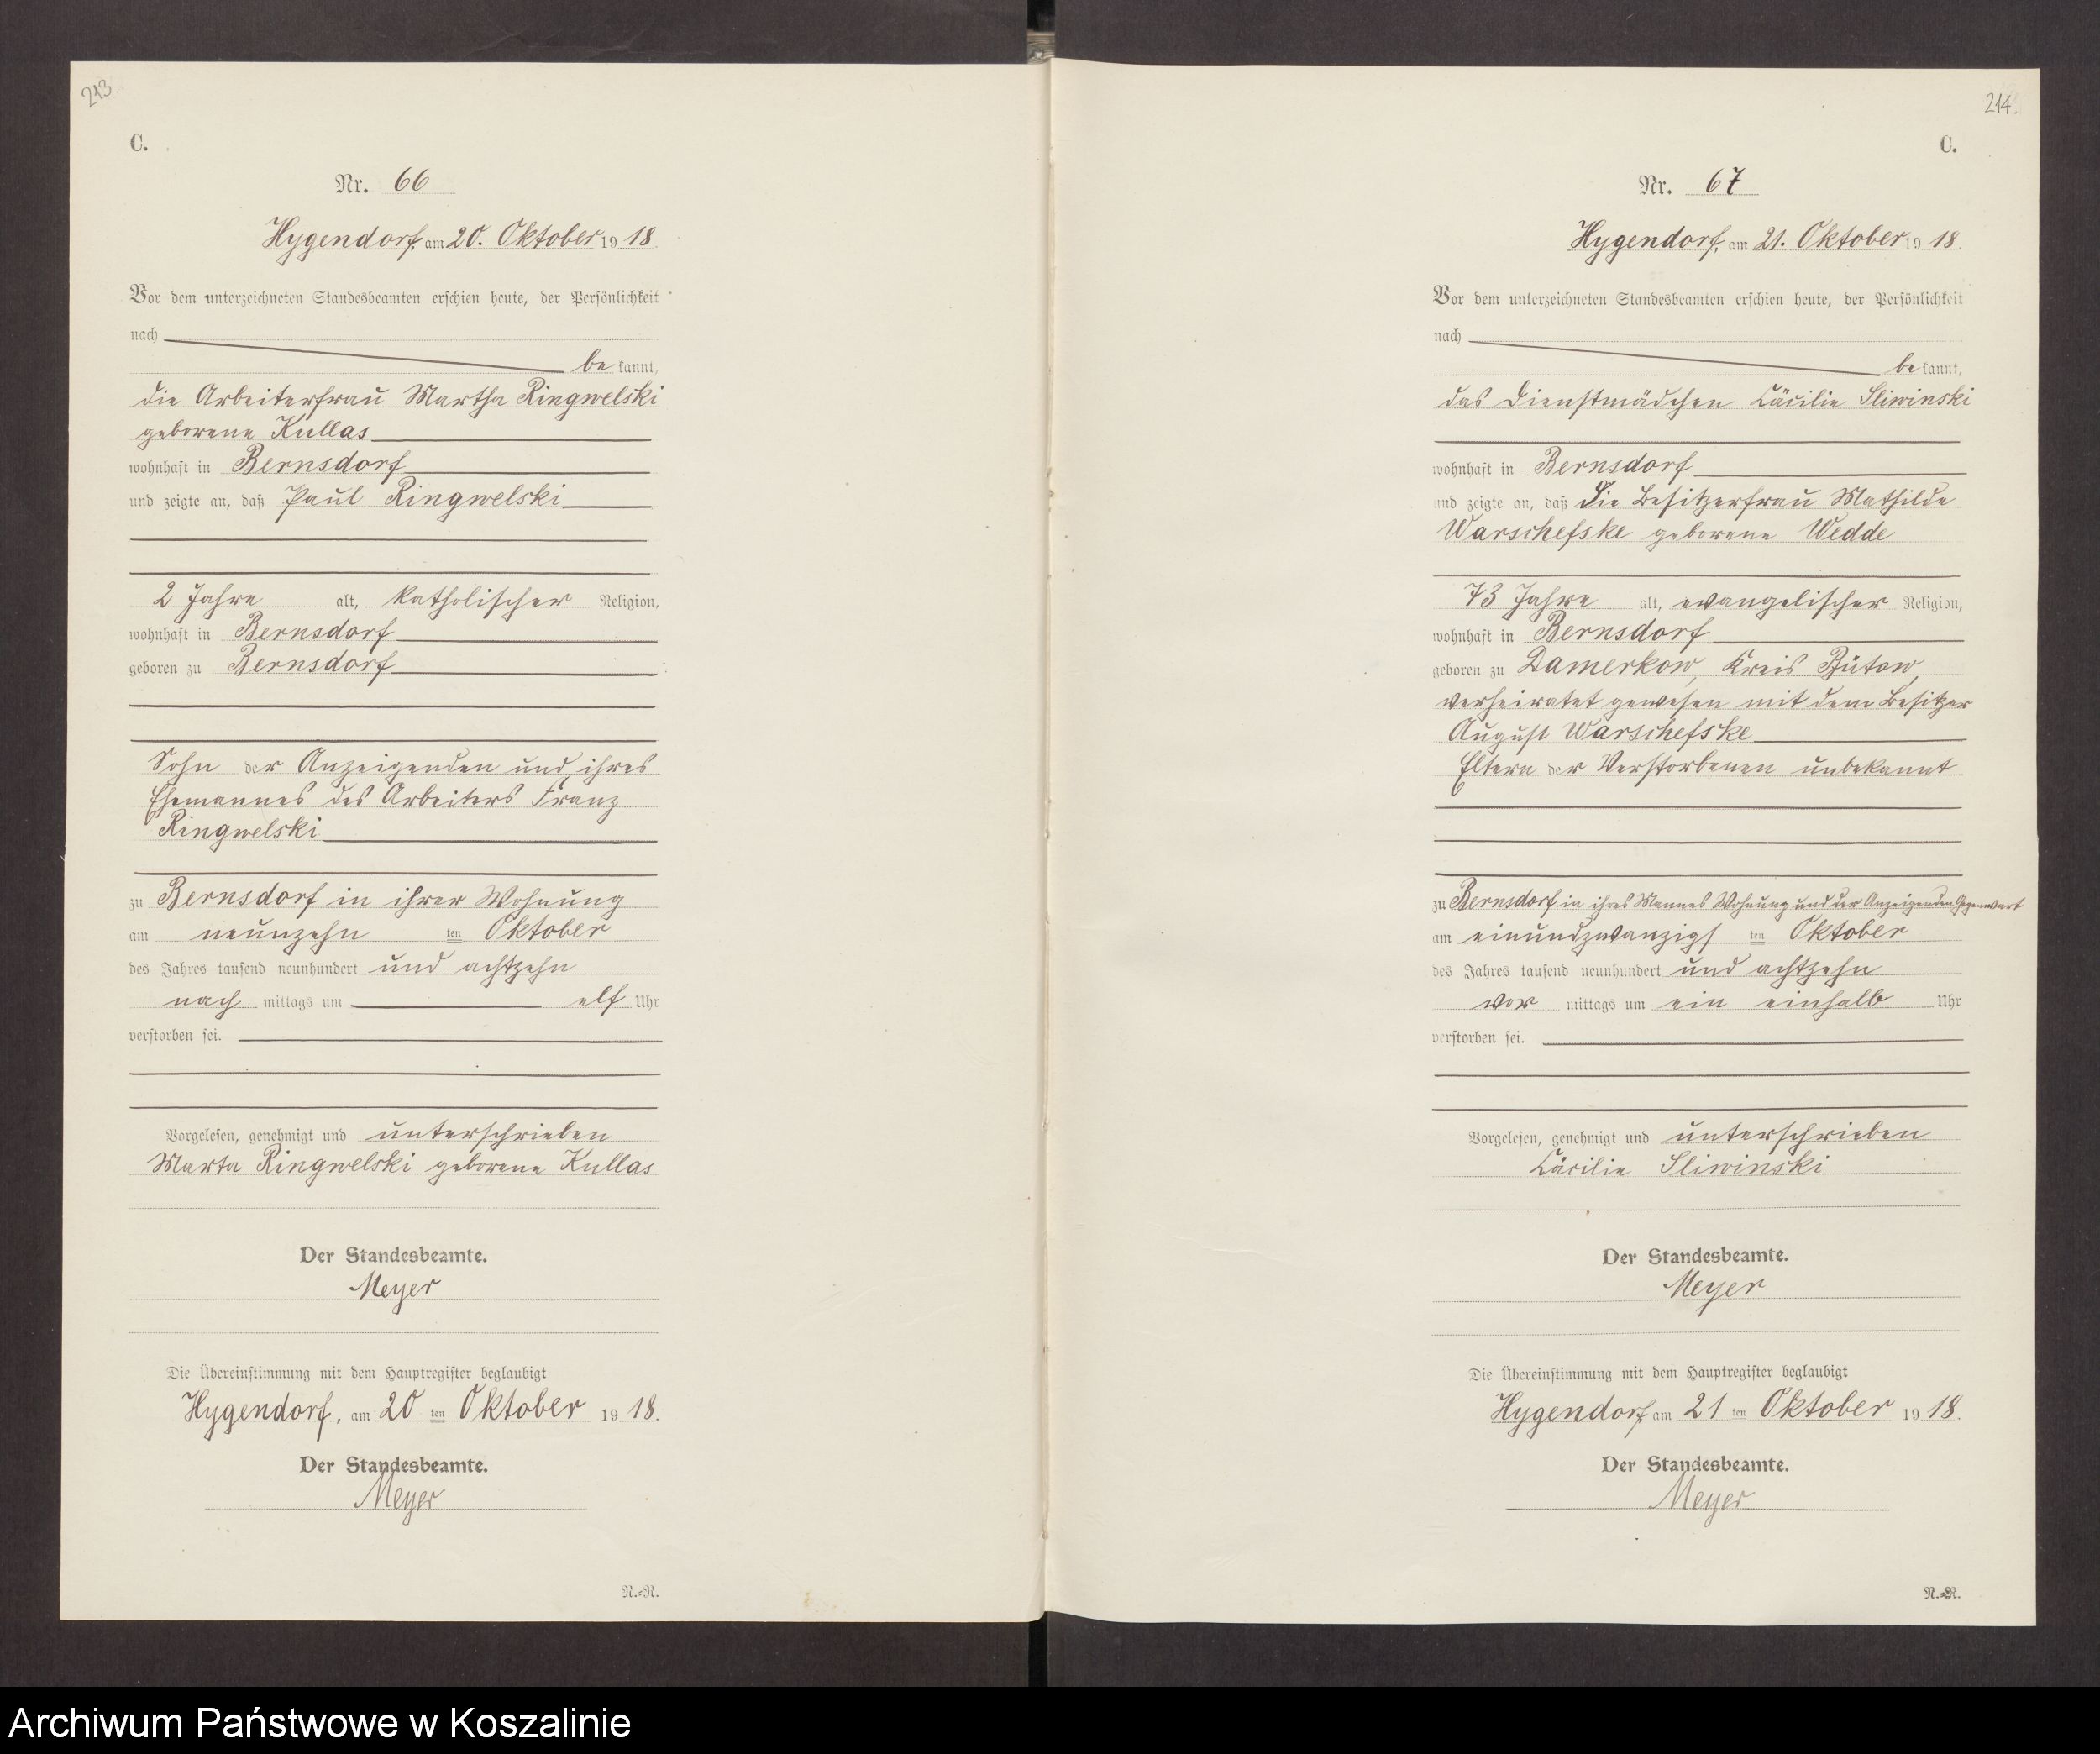 213
C.
Nr. 66
Hygendorf, am 20. Oktober 19 18.
Vor dem unterzeichneten Standesbeamten erschien heute, der Persönlichkeit
nach
be kannt,
die Arbeiterfrau Martha Ringwelski
geborene Kullas
wohnhaft in Bernsdorf
und zeigte an, daß Paul Ringwelski
2 Jahre alt, katholischer Religion,
wohnhaft in Bernsdorf
geboren zu Bernsdorf
Sohn der Anzeigenden und ihres
Ehemannes des Arbeiters Franz
Ringwelski
zu Bernsdorf in ihrer Wohnung
am neunzehn ten Oktober
des Jahres tausend neunhundert und achtzehn
nach mittags um elf Uhr
verstorben sei.
Vorgelesen, genehmigt und unterschrieben
Marta Ringwelski geborene Kullas
Der Standesbeamte.
Meyer
Die Übereinstimmung mit dem Hauptregister beglaubigt
Hygendorf, am 20 ten Oktober 19 18.
Der Standesbeamte.
Meyer
N.=N.
214.
C.
Nr. 67
Hygendorf, am 21. Oktober 19 18.
Vor dem unterzeichneten Standesbeamten erschien heute, der Persönlichkeit
nach
be kannt,
das Dienstmädchen Cäcilie Sliwinski
wohnhaft in Bernsdorf
und zeigte an, daß die Besitzerfrau Mathilde
Warschefske geborene Wedde
73 Jahre alt, evangelischer Religion,
wohnhaft in Bernsdorf
geboren zu Damerkow, Kreis Bütow,
verheiratet gewesen mit dem Besitzer
August Warschefske
Eltern der Verstorbenen unbekannt
zu Bernsdorf in ihres Mannes Wohnung und der Anzeigenden Gegenwart
am einundzwanzigs ten Oktober
des Jahres tausend neunhundert und achtzehn
vor mittags um ein einhalb Uhr
verstorben sei.
Vorgelesen, genehmigt und unterschrieben
Cäcilie Sliwinski
Der Standesbeamte.
Meyer
Die Übereinstimmung mit dem Hauptregister beglaubigt
Hygendorf am 21 ten Oktober 19 18.
Der Standesbeamte.
Meyer
N.=N.
Archiwum Państwowe w Koszalinie